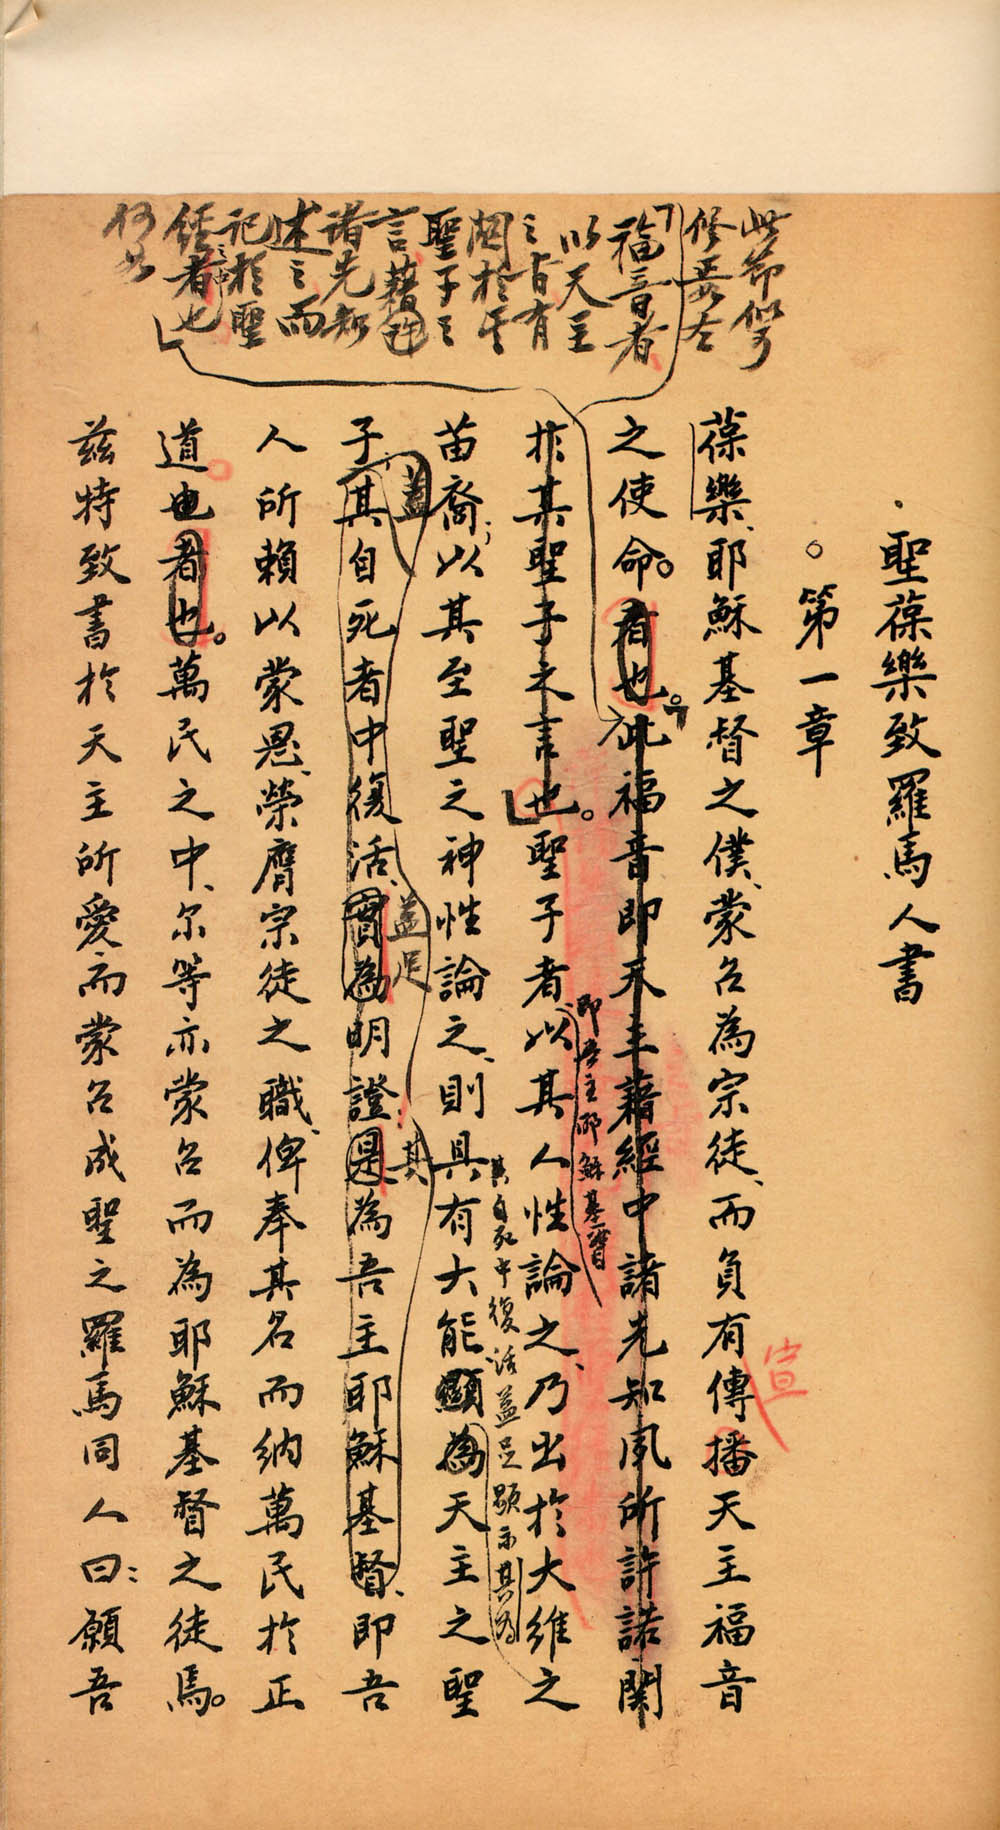 聖葆樂致羅馬人書
第一章
葆樂、耶穌基督之僕、蒙召為宗徒、而負有傳播天主福音
宣
之使命。者也。此福音即天主藉經中諸先知夙所許諾關
於其聖子之言也。聖子者、以其人性論之、乃出於大維之
即吾主耶穌基督
苗裔；以其至聖之神性論之、則具有大能顯為天主之聖
其自死中復活、蓋足顯示其為
子其自死者中復活、實為明證是為吾主耶穌基督、即吾
蓋
蓋足
其
人所賴以蒙恩、榮膺宗徒之職、俾奉其名而納萬民於正
道也者也。萬民之中、尔等亦蒙召而為耶穌基督之徒焉。
茲特致書於天主所愛而蒙召成聖之羅馬同人曰：願吾
此節似可
修正如左
「福音者
以天主
之旨有
關於其
聖子之
言藉許
諸先知
述之而
記於聖
經者也」
何如